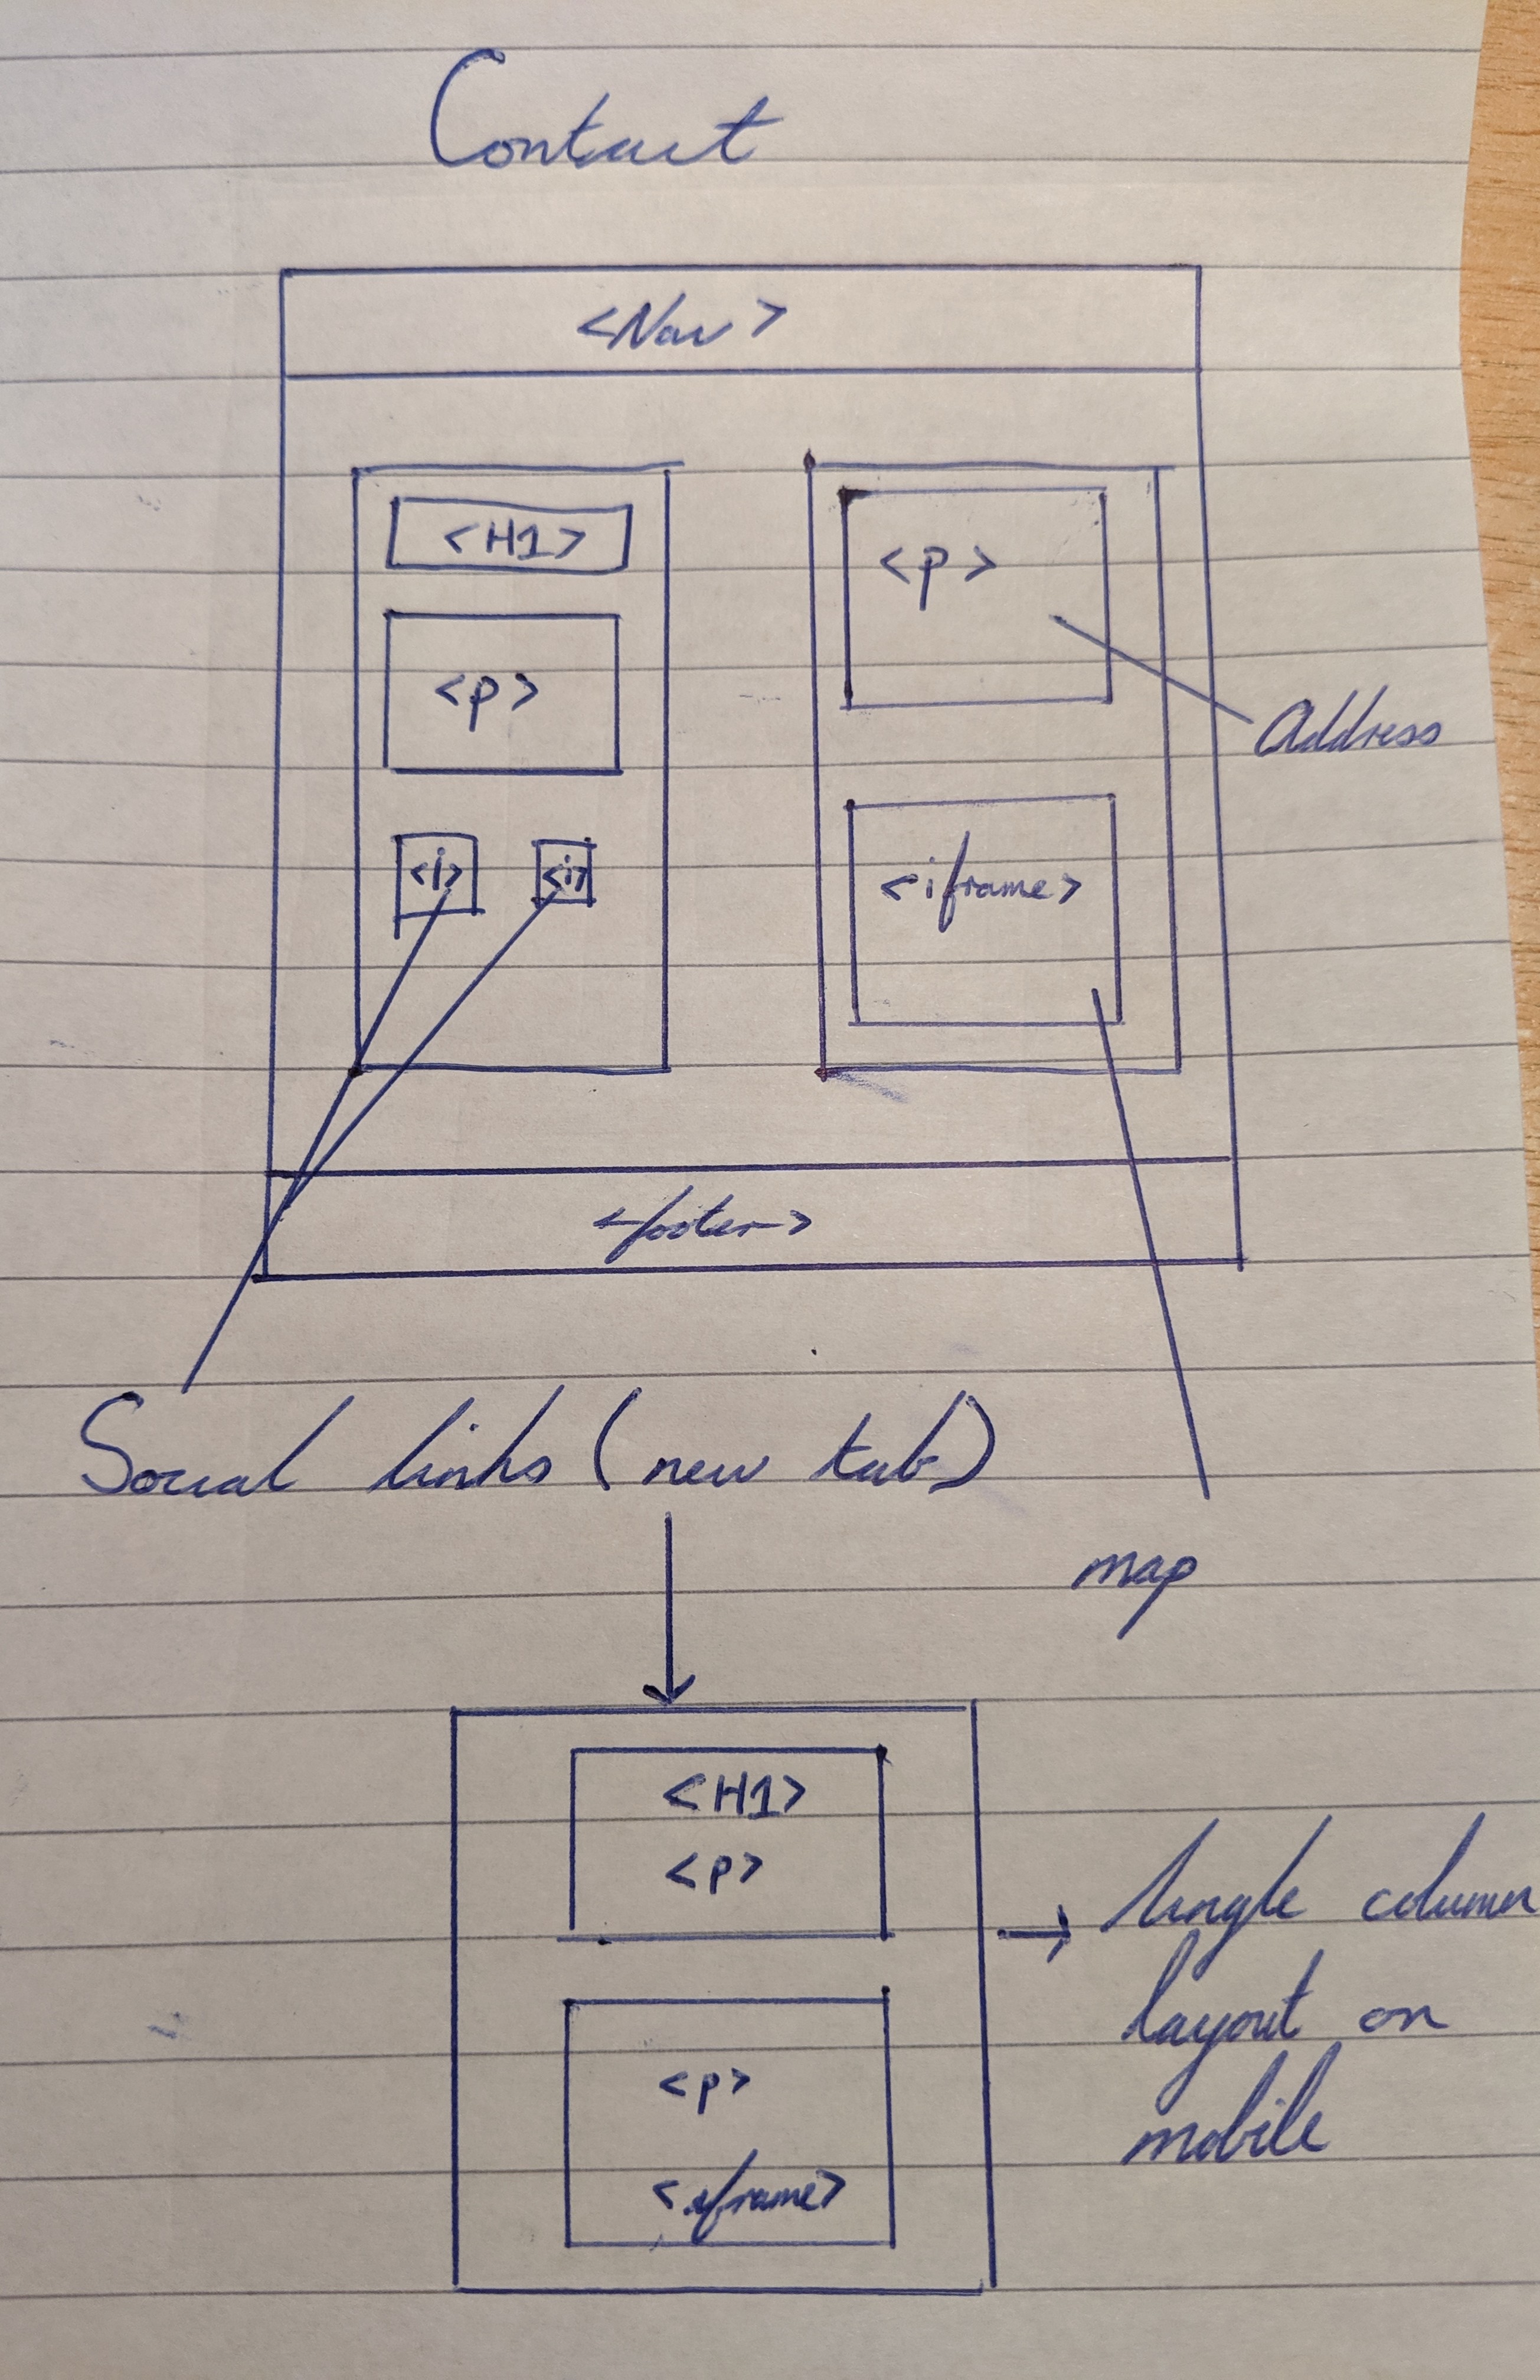 Contact
<Nav>
<H1>
<p>
<i> <i>
<p>
Address
<iframe>
<footer>
Social links (new tab)
map
<H1>
<p>
<p>
<iframe>
Single column
layout on
mobile